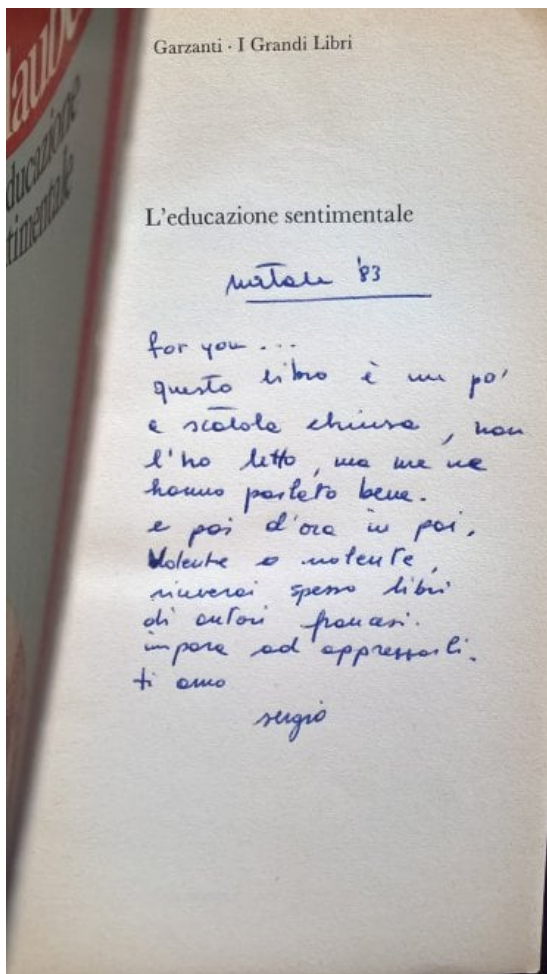 laube
ducazione
timentale
Garzanti · I Grandi Libri
L'educazione sentimentale
natale '83
for you...
questo libro è un po'
a scatola chiusa, non
l'ho letto, ma me ne
hanno parlato bene.
e poi d'ora in poi,
volente o nolente,
riceverai spesso libri
di autori francesi.
impara ad apprezzarli.
ti amo
sergio